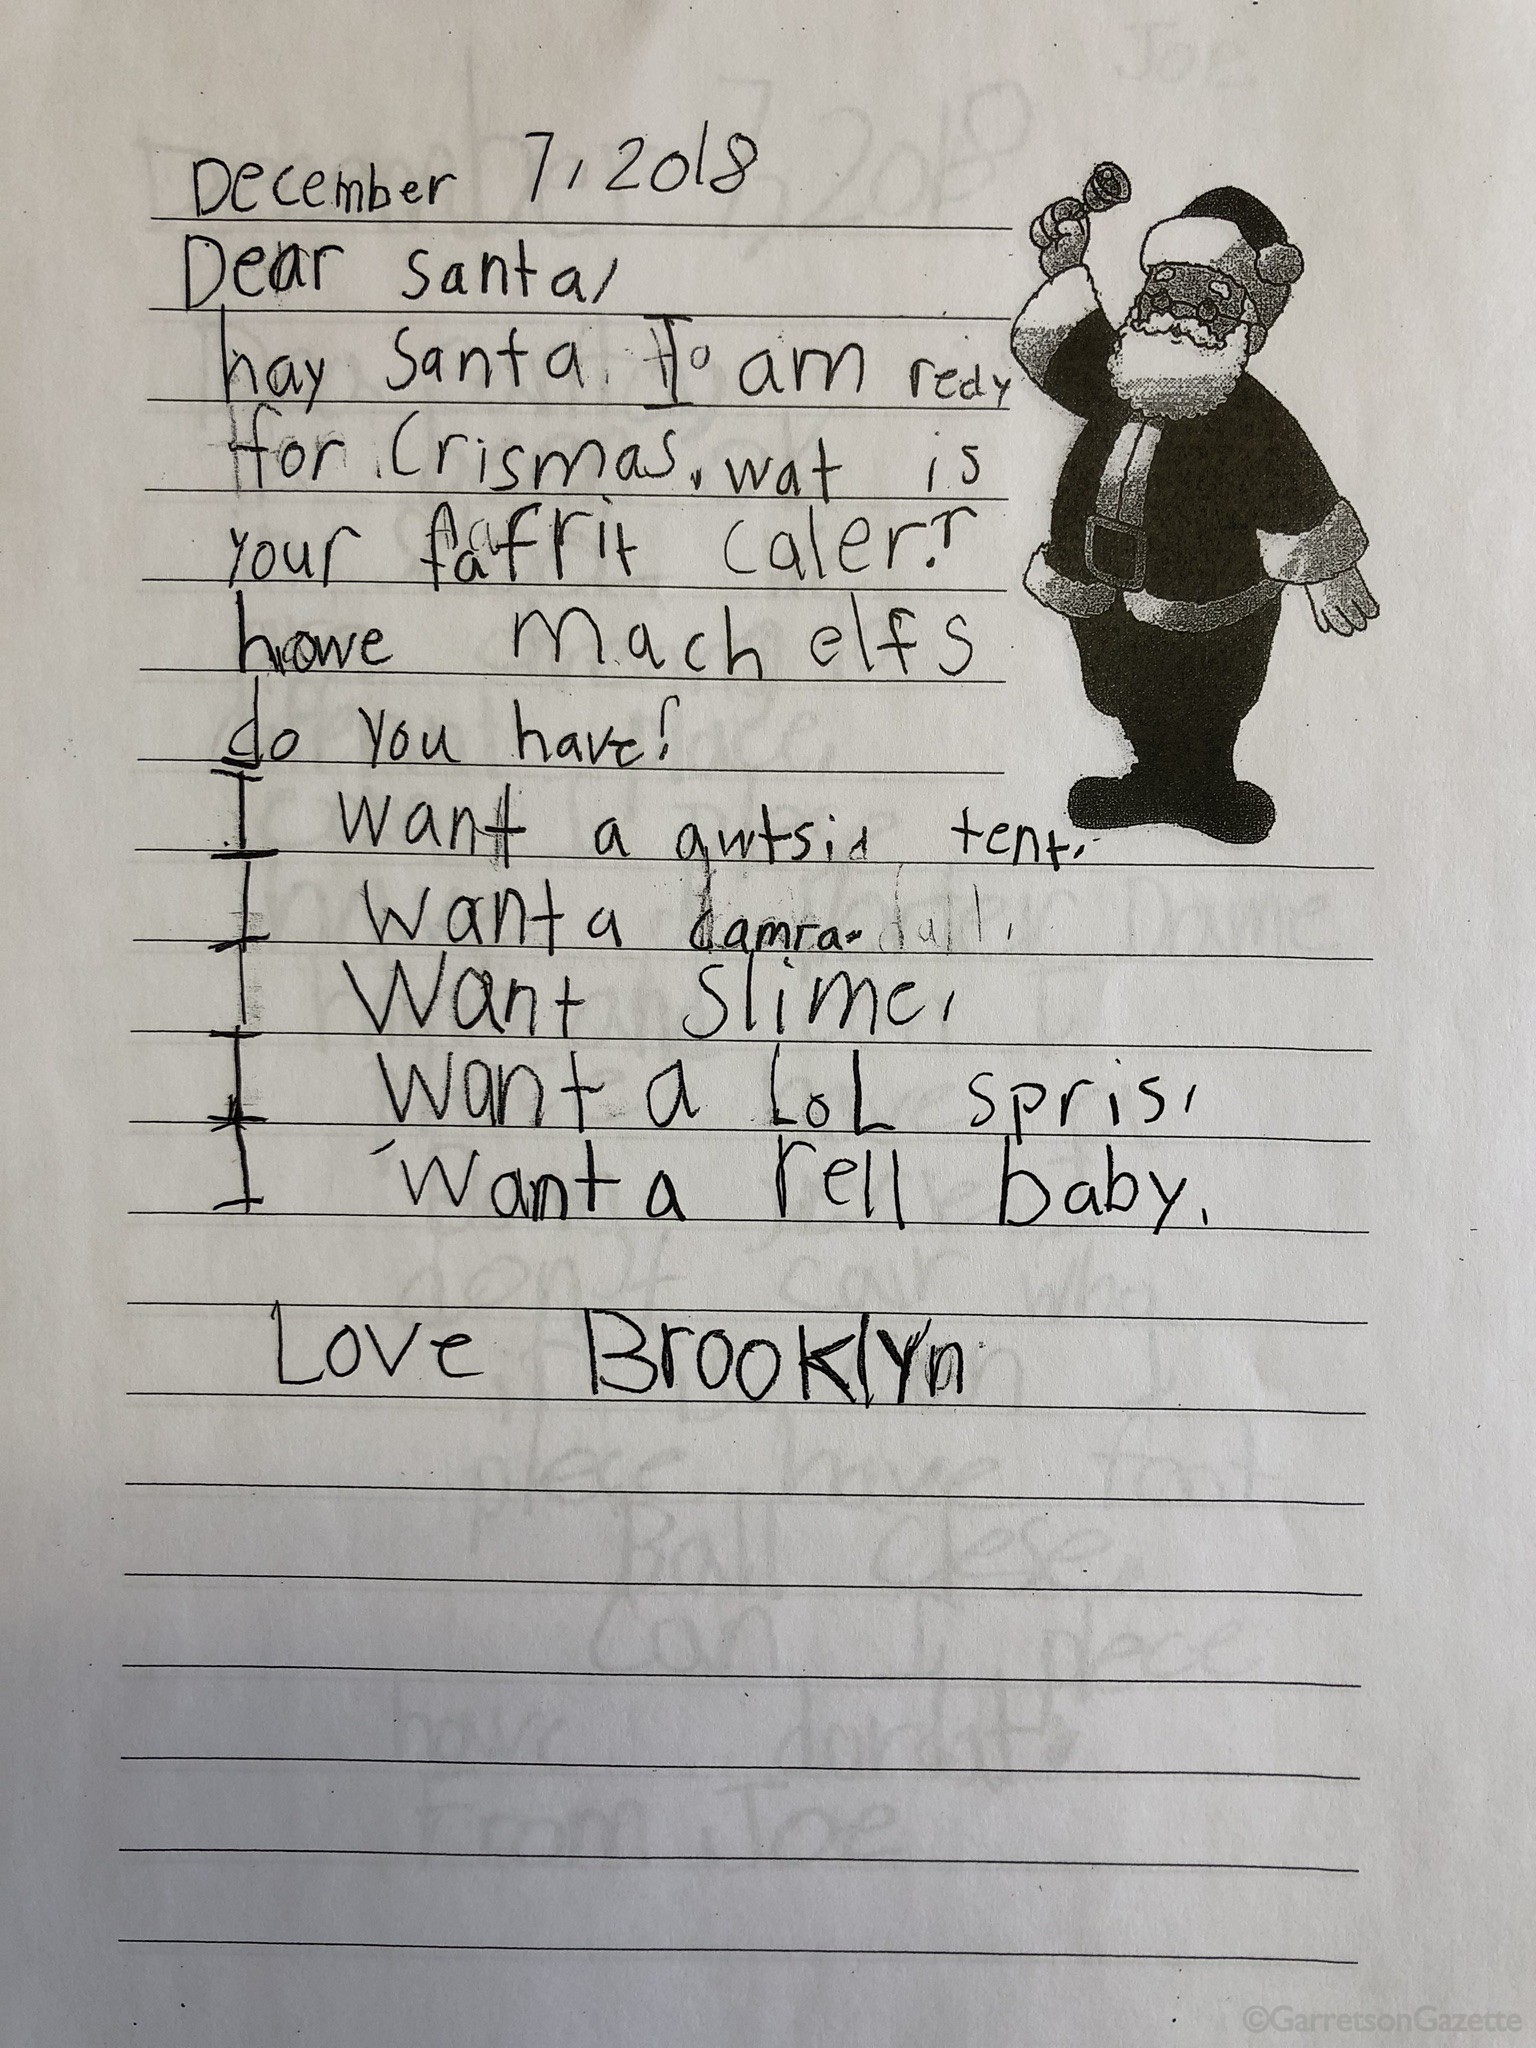 December 7, 2018
Dear Santa,
hay Santa. I am redy
for Crismas. wat is
your fafrit caler?
howe mach elfs
do you have?
I want a awtsid tent.
I want a camra.
I want slime.
I want a LOL spris.
I want a rell baby.
Love Brooklyn
©GarretsonGazette